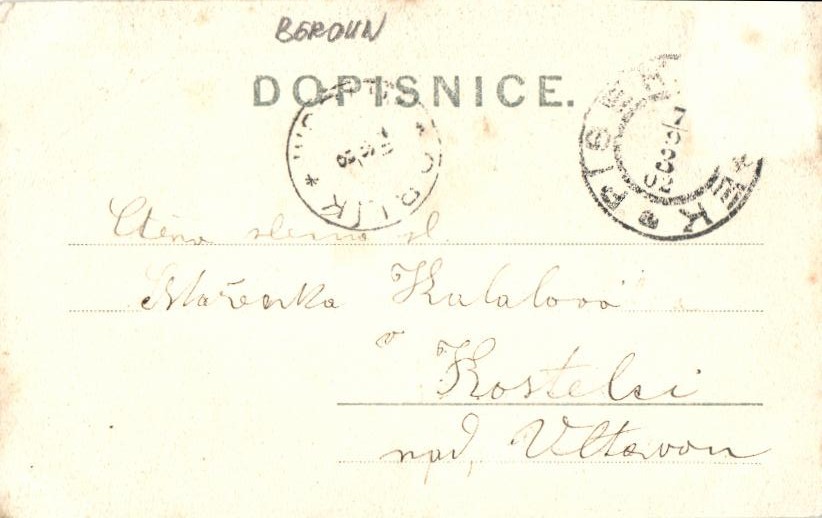 BEROUN
DOPISNICE.
ORLÍK
PISEK * PÍSEK
Ctěná slečna sl.
Mařenka Kulalová
v Kostelci
nad Vltavou